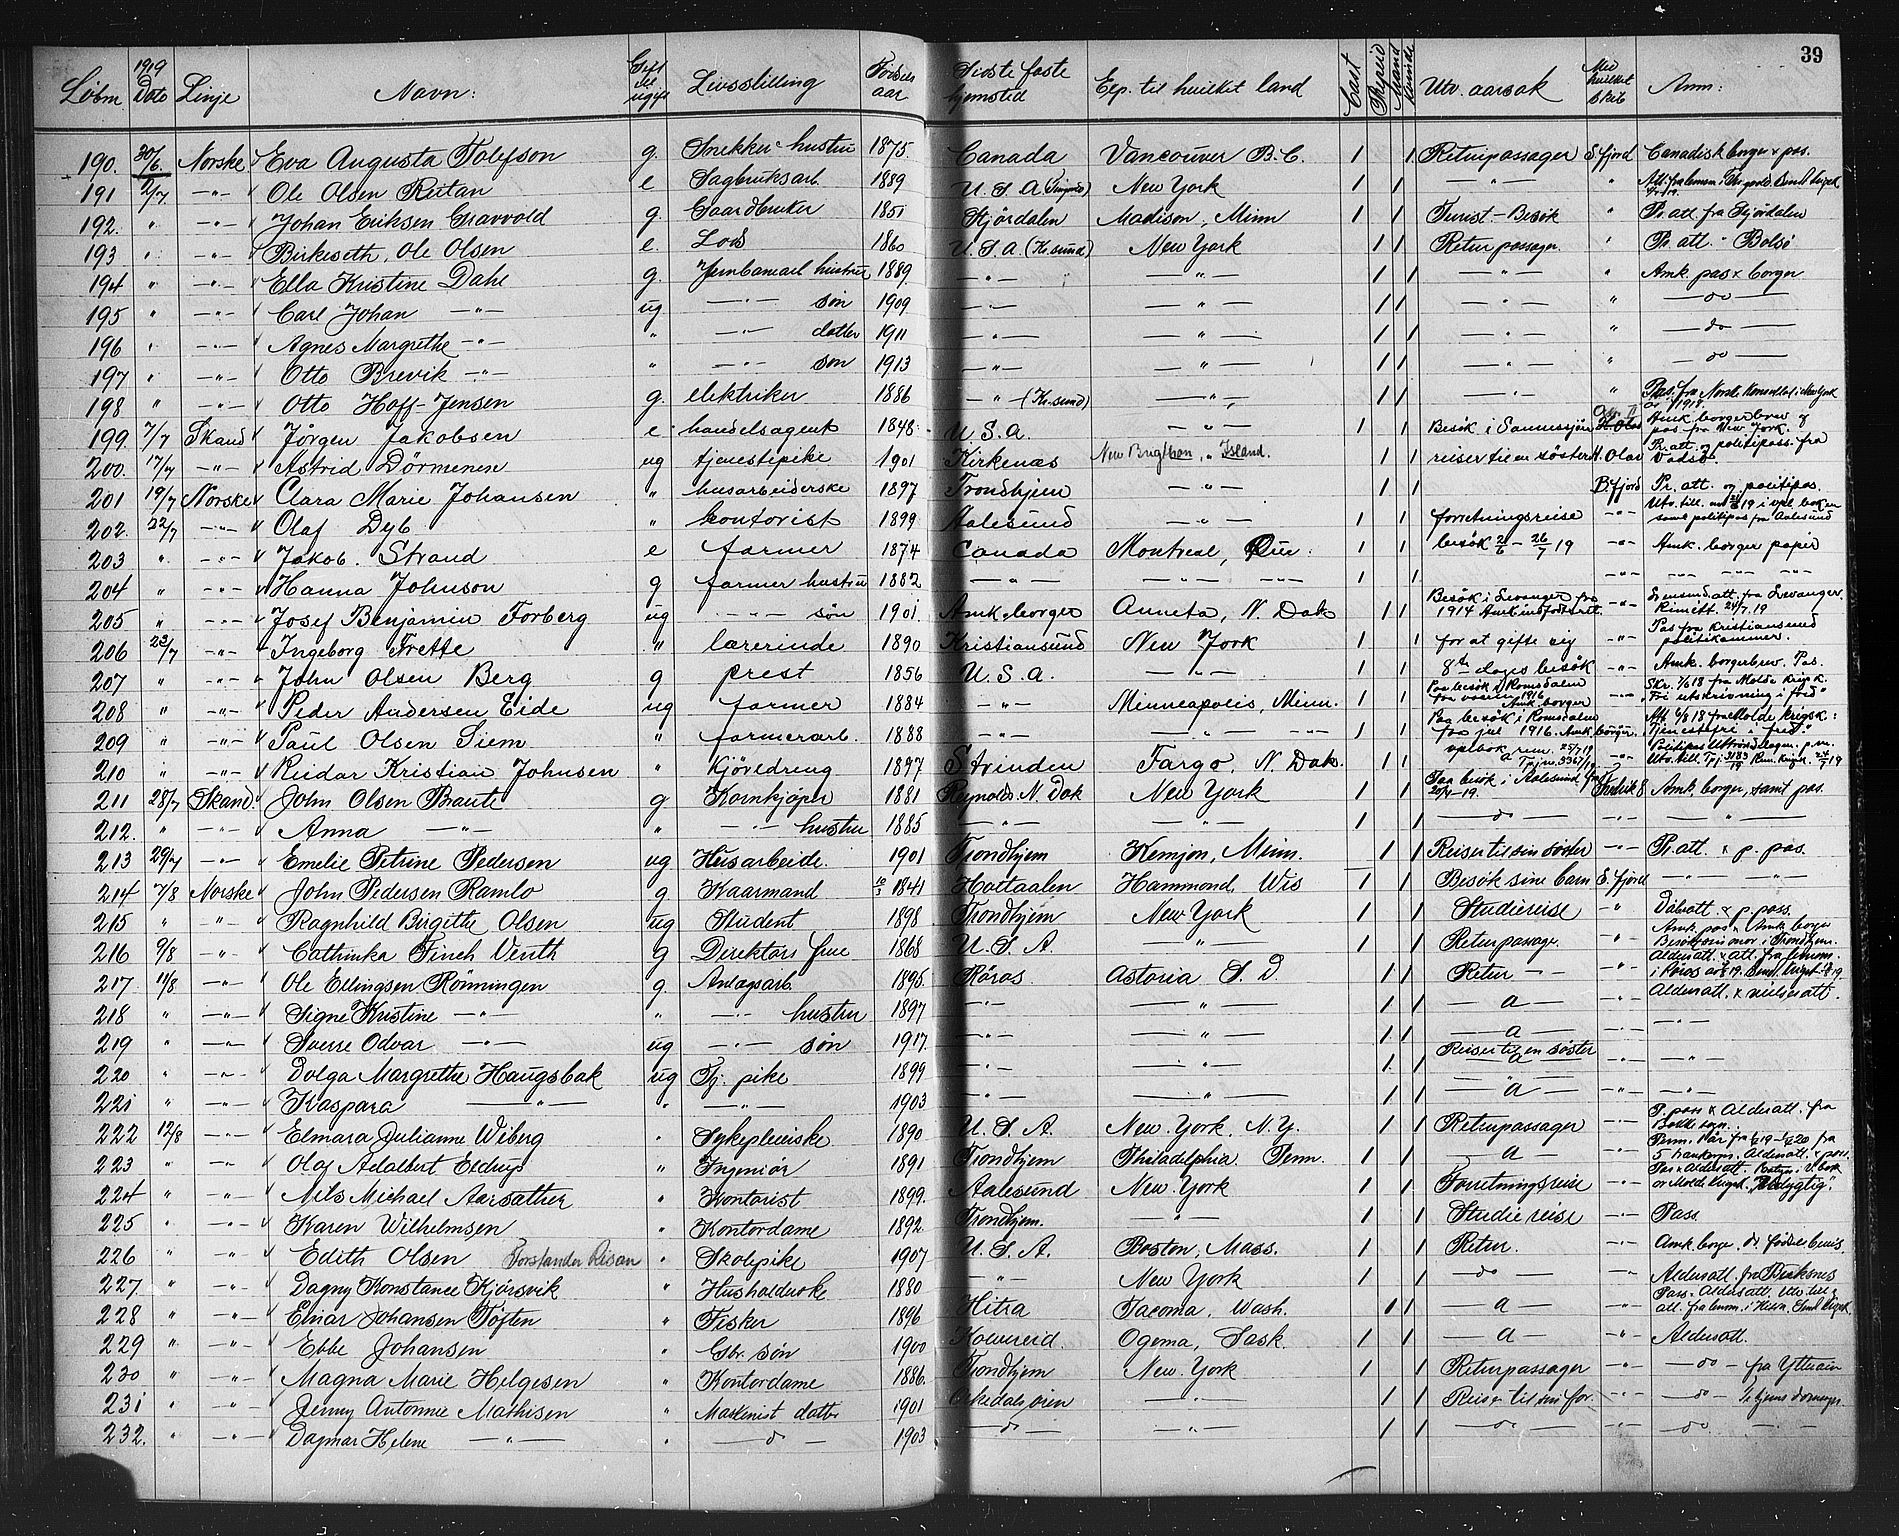 39
Löbnr. 1919 Dato Linje Navn: Gift el. ugift Livsstilling Födsels aar Sidste faste hjemsted Exp. til hvilket land Cast Prepaid Mand Kvinde Utv. aarsak Med hvilket skib Anm:
190. 30/6 Norske Eva Augusta Tolefson g. Snekker hustru 1875 Canada Vancouver B.C. 1 1 Returpassager S.fjord Canadisk borger & pas.
191 2/7 -"- Ole Olsen Reitan e Sagbruksarb. 1889 U.S.A. New York 1 1 -"- "
192. " -"- Johan Eriksen Gravvold g. Gaardbruker 1851 Stjördalen Madison, Minn 1 1 Turist-Besök " Pr. att. fra Stjördalen
193 " -"- Birkeseth, Ole Olsen e. Lods 1860 U.S.A. (Kr.sund) New York 1 1 Retur passager. " Pr. att. " Bolsö
194 " -"- Ella Kristine Dahl g. Jernbanearb hustru 1889. -"- -"- 1 1 -"- " Amk. pas & borger
195 " -"- Carl Johan -"- ug -"- sön 1909 -"- -"- 1 1 -"- " -do-
196 " -"- Agnes Margrethe -"- " -"- datter 1911 -"- -"- 1 1 -"- " -do-
197 " -"- Otto Brevik -"- " -"- sön 1913 -"- -"- 1 1 -"- " -do-
198 " -"- Otto Hoff-Jensen g. elektriker 1886 -"- (Kr.sund) -"- 1 1 -"- " Pas. fra Norsk Konsulat i New York 1918.
199 7/7 Skand Jörgen Jakobsen e handelsagent 1848 U.S.A. -"- 1 1 Besök i Sannessjöen Amk borgerbrev og pas fra New York.
200. 17/7 -"- Astrid Dörmenen ug tjenestepike 1901 Kirkenæs New Brighton, " Island. 1 1 reiser til en söster H. Olav Pr. att. og politipass. fra Vadsö.
201 19/7 Norske Clara Marie Johansen " husarbeiderske 1897 Trondhjem -"- 1 1 B.fjord Pr. att. og politipas.
202. 22/7 -"- Olaf Dyb " kontorist 1899 Aalesund -"- 1 1 forretningsreise -"- samt politipas fra Aalesund
203 " -"- Jakob. Strand e farmer 1874 Canada Montreal, 1 1 besök 2/6 - 26/7 19 -"- Amk. borger papir
204 " -"- Hanna Johnson g farmer hustru 1882 -"- -"- -"- 1 1 -"- -"- -"- -"-
205 " -"- Josef Benjamin Forberg ug -"- sön 1901 Amk. borger Anneta, N. Dak 1 1 Besök i Levanger fra 1914 -"-
206 23/7 -"- Ingeborg Frette " lærerinde 1890 Kristiansund New York 1 1 for at gifte sig -"- Pas fra Kristiansund politikammer.
207 " -"- John Olsen Berg g prest 1856 U.S.A. -"- 1 1 8de dages besök -"- Amk. borgerbrev. Pas.
208 " -"- Peder Andersen Eide ug farmer 1884 -"- Minneapolis, Minn. 1 1 Paa besök i Romsdalen fra vaaren 1916 Amk borger -"- Skr. 7/6 18 fra Molde krigsk. "Fri utskrivning i fred"
209 " -"- Paul Olsen Siem " farmerarb. 1888 -"- -"- -"- 1 1 Paa besök i Romsdalen fra jul 1916. Amk. borger. Att. 6/8 18 fra Molde krigsk: "Tjenestefri i fred"
210 " -"- Reidar Kristian Johnsen " Kjöredreng 1897 Strinden Fargo, N. Dak. 1 1 -"-
211 28/7 Skand. John Olsen Braute g Kornkjöper 1881 Reynolds N. Dak New York 1 1 Paa besök i Aalesund Fredrik 8 Amk. borger, samt pas.
212. " -"- Anna -"- " -"- hustru 1885 -"- -"- 1 1 -do- -"-
213 29/7 -"- Emelie Petrine Pedersen ug Husarbeide. 1901 Trondhjem Kemjon, Minn. 1 1 Reiser til sin söster -"- Pr. att. & p. pas.
214 7/8 Norske John Pedersen Ramlo g Kaarmand 10/3 1841 Holtaalen Hammond, Wis 1 1 Besök sine barn S.fjord -"- -"-
215 " " Ragnhild Birgitte Olsen ug Student 1898 Trondhjem New York 1 1 Studiereise " Dåbsatt. & p. pass.
216 9/8 -"- Cathinka Finch Vinth g Direktörs frue 1868 U.S.A. -"- 1 1 Returpassage. " Amk. pas & Amk. borger Besökt sin mor i Trondhjem.
217 11/8 -"- Ole Ellingsen Rönningen g. Anlægsarb. 1895 Röros Astoria S.D. 1 1 Retur -"- -"- Aldersatt. & att. fra lensm. i Röros
218 " -"- Signe Kristine -"- " -"- hustru 1897 -"- -"- 1 1 -a- -"- Aldersatt. & vielsesatt.
219 " -"- Sverre Odvar -"- ug -"- sön 1917. -"- -"- 1 1 -a- -"- -"-
220 " -"- Dolga Margrethe Haugsbak ug Tj. pike 1899 -"- -"- 1 1 Reiser til en söster -a- -"- -"-
221 " " Kaspara -"- " -"- 1903 -"- -"- 1 1 -a- -"- -"-
222 12/8 -"- Elmara Julianne Wiberg " Sykepleierske 1890 U.S.A. New York, N.Y. 1 1 Returpassager -"- P. pass & Aldersatt. fra
223 " -"- Olaf Adalbert Eldrup " Ingeniör 1891 Trondhjem Philadelphia Penn. 1 1 -a- -"-
224 " -"- Nils Michael Aarsæther " Kontorist 1899. Aalesund New York 1 1 Forretningsreise -"- Pas & Aldersatt.
225 " -"- Karen Wilhelmsen " Kontordame 1892. Trondhjem. -"- 1 1 Studiereise -"- Pass.
226 " -"- Edith Olsen Forstander Risan " Skolepike 1907 U.S.A. Boston, Mass. 1 1 Retur. -"-
227 " -"- Dagny Konstance Kjörsvik " Husholderske 1880 -"- New York 1 1 -do- -"- Aldersatt. fra
228 " -"- Einar Johansen Töften " Fisker 1896 Hitra Tacoma, Wash. 1 1 -a- -"- Pass - Aldersatt.
229 " -"- Ebbe Johansen " Gbr. sön 1900 Kolvereid Ogema, Sask. 1 1 -a- -"- Aldersatt.
230 " -"- Magna Marie Helgesen " Kontordame 1886. Trondhjem New York 1 1 Returpassager -"- -do- fra Ytterøen
231 " -"- Jenny Antonnie Mathisen " Maskinist datter 1901 Orkedalsören -"- 1 1 Reiser til sin far -"- -do-
232. " -"- Dagmar Helene -"- " -do- 1903 -do- -"- 1 1 -do- -"- -do- -"-